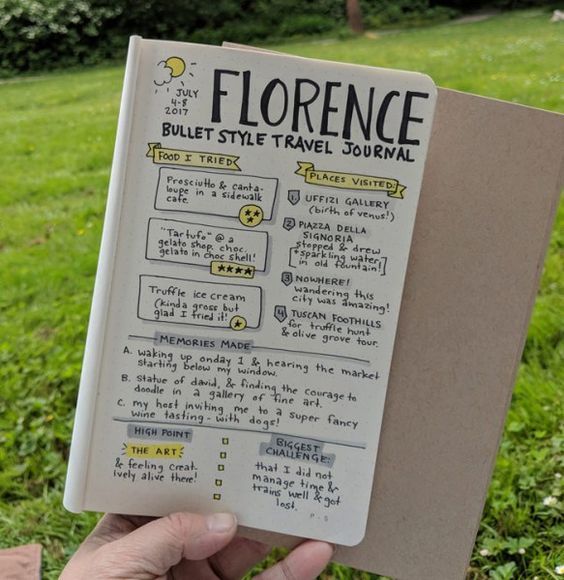 JULY
4-8
2017
FLORENCE
BULLET STYLE TRAVEL JOURNAL
FOOD I TRIED
Prosciutto & canta-
loupe in a sidewalk
cafe.
"Tartufo" @ a
gelato shop. choc.
gelato in choc shell!
Truffle ice cream
(kinda gross but
glad I tried it!
PLACES VISITED:
1. UFFIZI GALLERY
(birth of venus!)
2 PIAZZA DELLA
SIGNORIA
stopped & drew
sparkling water
in old fountain!
3 NOWHERE!
wandering this
city was amazing!
4 TUSCAN FOOTHILLS
for truffle hunt
& olive grove tour.
MEMORIES MADE
A. waking up onday 1 & hearing the market
starting below my window.
B. Statue of david, & finding the courage to
doodle in a gallery of fine art.
C. my host inviting me to a super fancy
wine tasting - with dogs!
HIGH POINT
THE ART
& feeling creat-
ively alive there!
BIGGEST
CHALLENGE:
that I did not
manage time &
trains well & got
lost.
P. 5